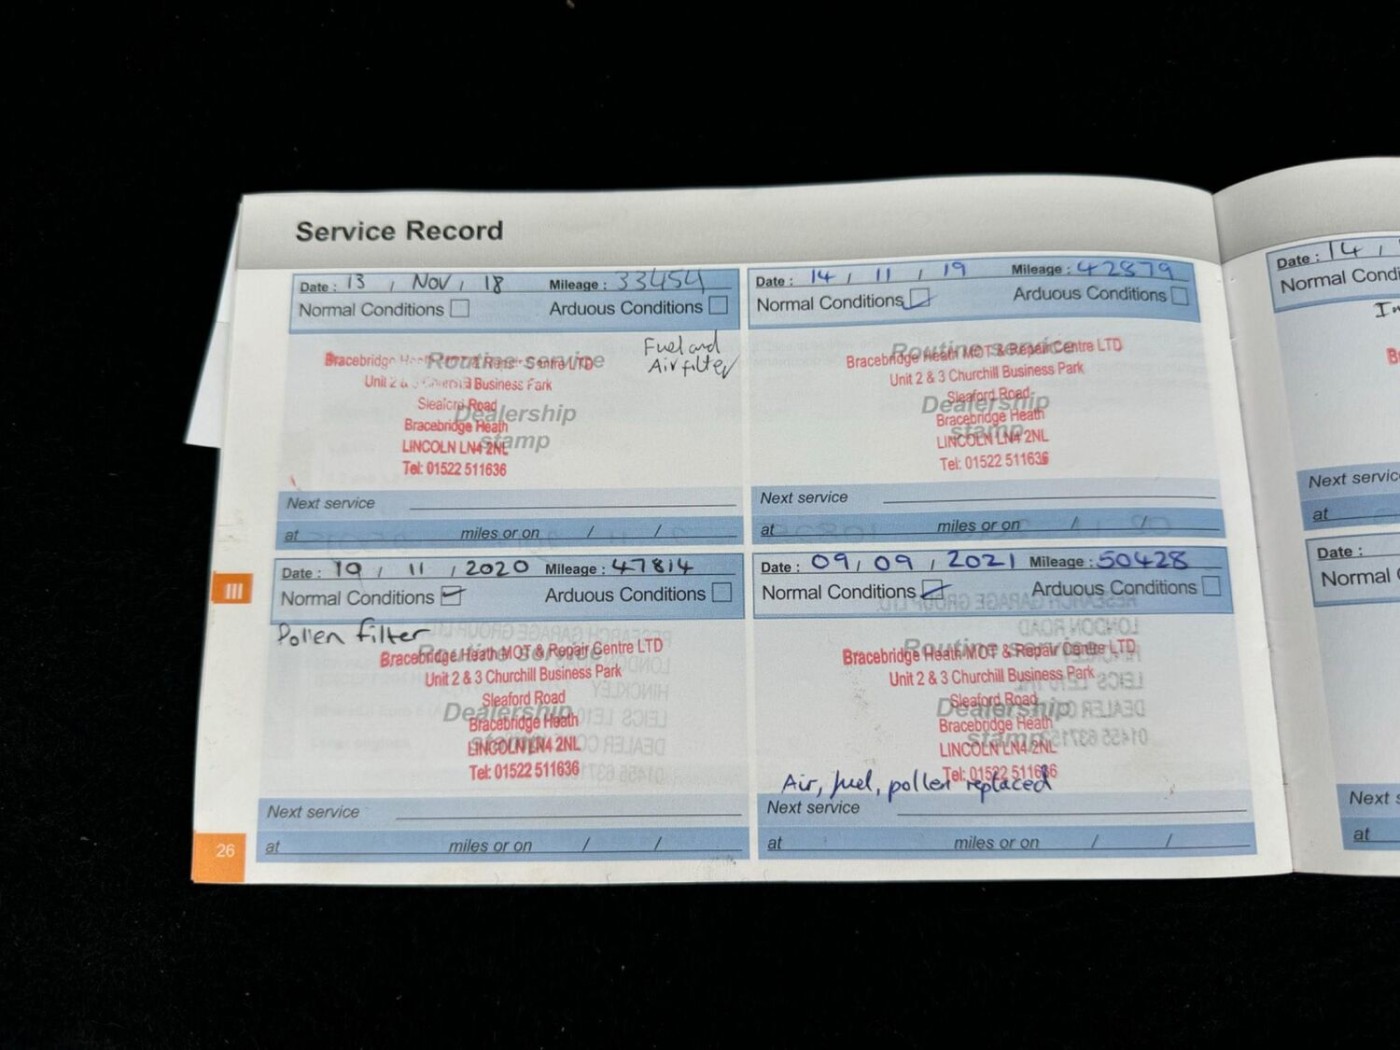 Service Record
Date : 13 / Nov / 18 Mileage : 33454
Normal Conditions Arduous Conditions
Fuel and
Air filter
Routine service
Bracebridge Heath MOT & Repair Centre LTD
Unit 2 & 3 Churchill Business Park
Sleaford Road
Dealership
Bracebridge Heath
stamp
LINCOLN LN4 2NL
Tel: 01522 511636
Next service
at miles or on / /
Date : 14 / 11 / 19 Mileage : 42879
Normal Conditions Arduous Conditions
Routine service
Bracebridge Heath MOT & Repair Centre LTD
Unit 2 & 3 Churchill Business Park
Sleaford Road
Dealership
Bracebridge Heath
stamp
LINCOLN LN4 2NL
Tel: 01522 511636
Next service
at miles or on / /
Date : 19 / 11 / 2020 Mileage : 47814
Normal Conditions Arduous Conditions
Pollen filter
Routine service
Bracebridge Heath MOT & Repair Centre LTD
Unit 2 & 3 Churchill Business Park
Sleaford Road
Dealership
Bracebridge Heath
stamp
LINCOLN LN4 2NL
Tel: 01522 511636
Next service
at miles or on / /
Date : 09 / 09 / 2021 Mileage : 50428
Normal Conditions Arduous Conditions
Routine service
Bracebridge Heath MOT & Repair Centre LTD
Unit 2 & 3 Churchill Business Park
Sleaford Road
Dealership
Bracebridge Heath
stamp
LINCOLN LN4 2NL
Tel: 01522 511636
Air, fuel, pollen replaced
Next service
at miles or on / /
III
26
Date : 14 /
Normal
Next
at
Date :
Normal
Next
at